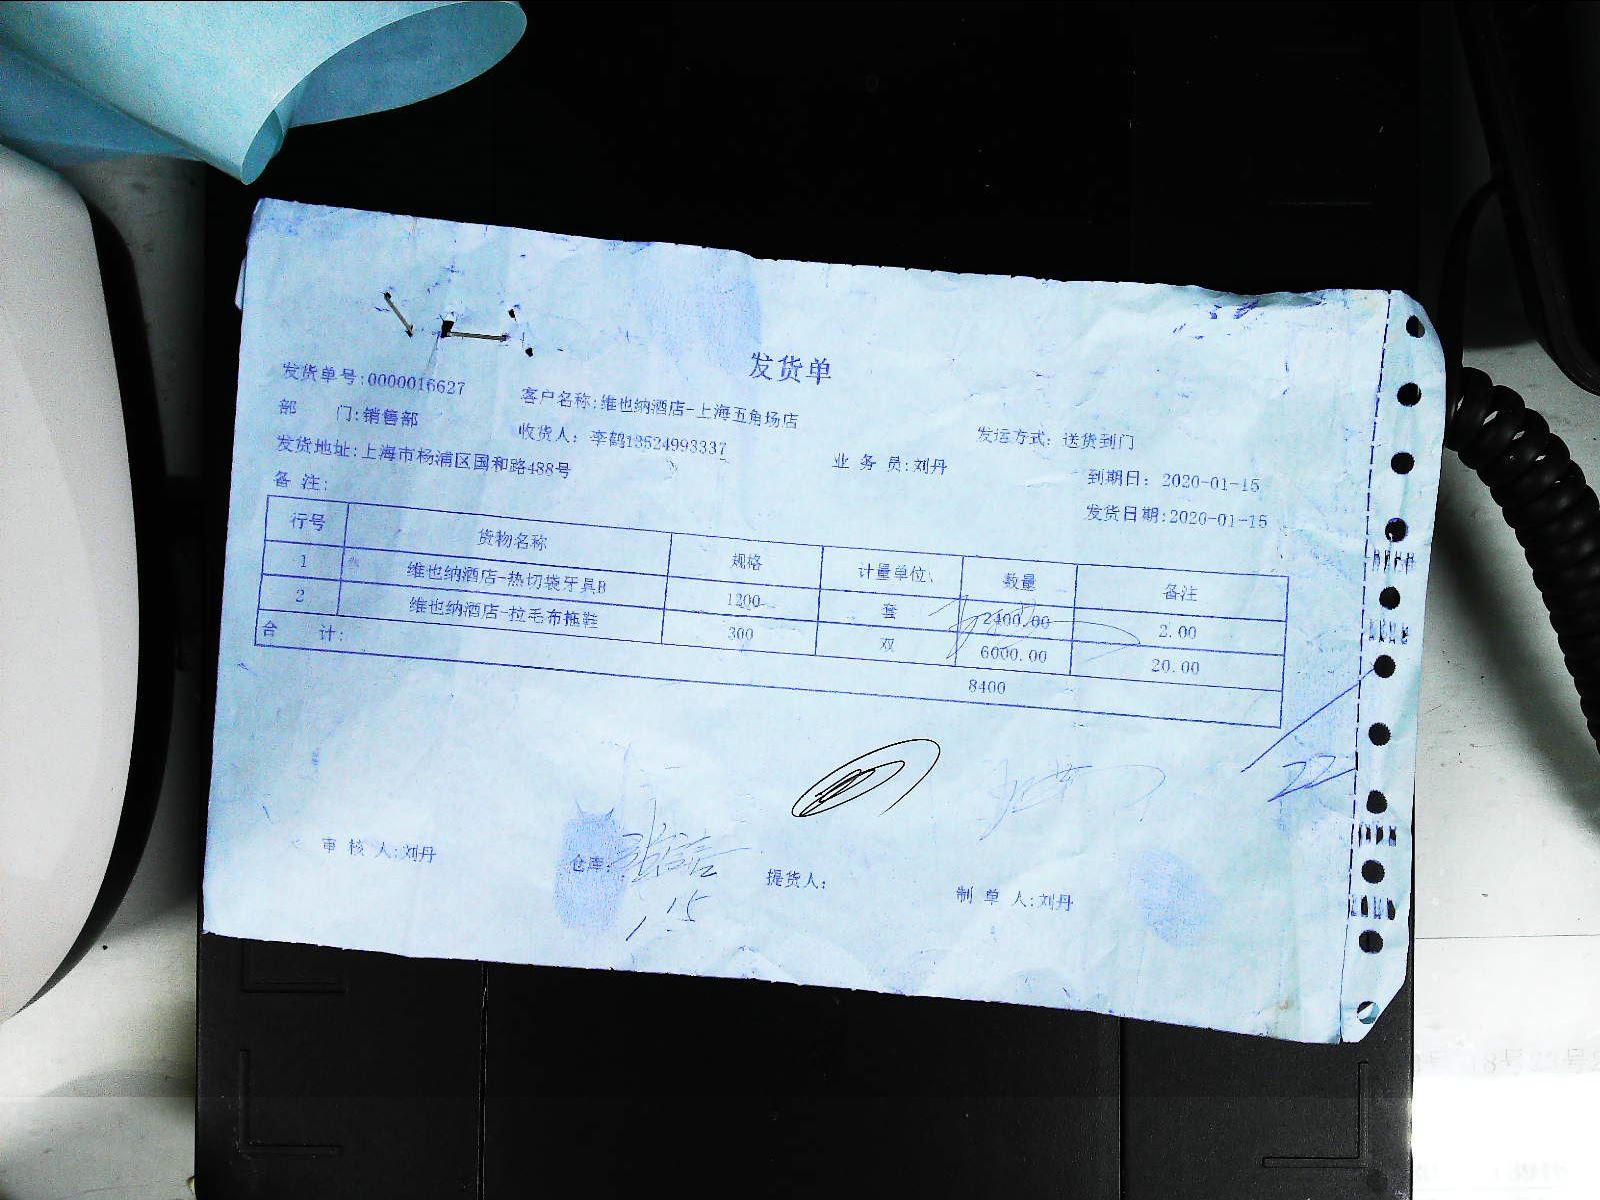 发货单
发货单号:0000016627
客户名称:维也纳酒店-上海五角场店
发运方式: 送货到门
部 门:销售部
收货人: 李鹤13524993337
业 务 员:刘丹
到期日: 2020-01-15
发货地址:上海市杨浦区国和路488号
发货日期:2020-01-15
备 注:
行号 货物名称 规格 计量单位 数量 备注
1 维也纳酒店-热切袋牙具B 1200 套 2400.00 2.00
2 维也纳酒店-拉毛布拖鞋 300 双 6000.00 20.00
合 计: 8400
22
审 核 人:刘丹
仓库:
提货人:
制 单 人:刘丹
1.15